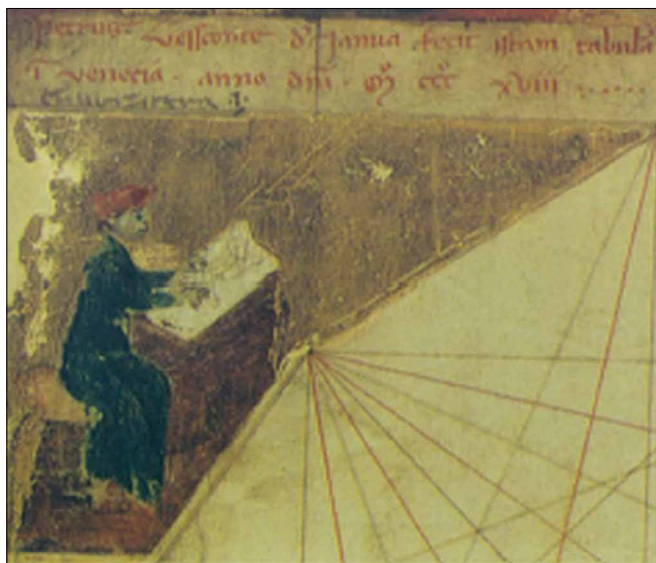 Petrus vessconte d' Janua fecit istam tabulā
ī venecia · anno dnī · M ccc xviii ·····